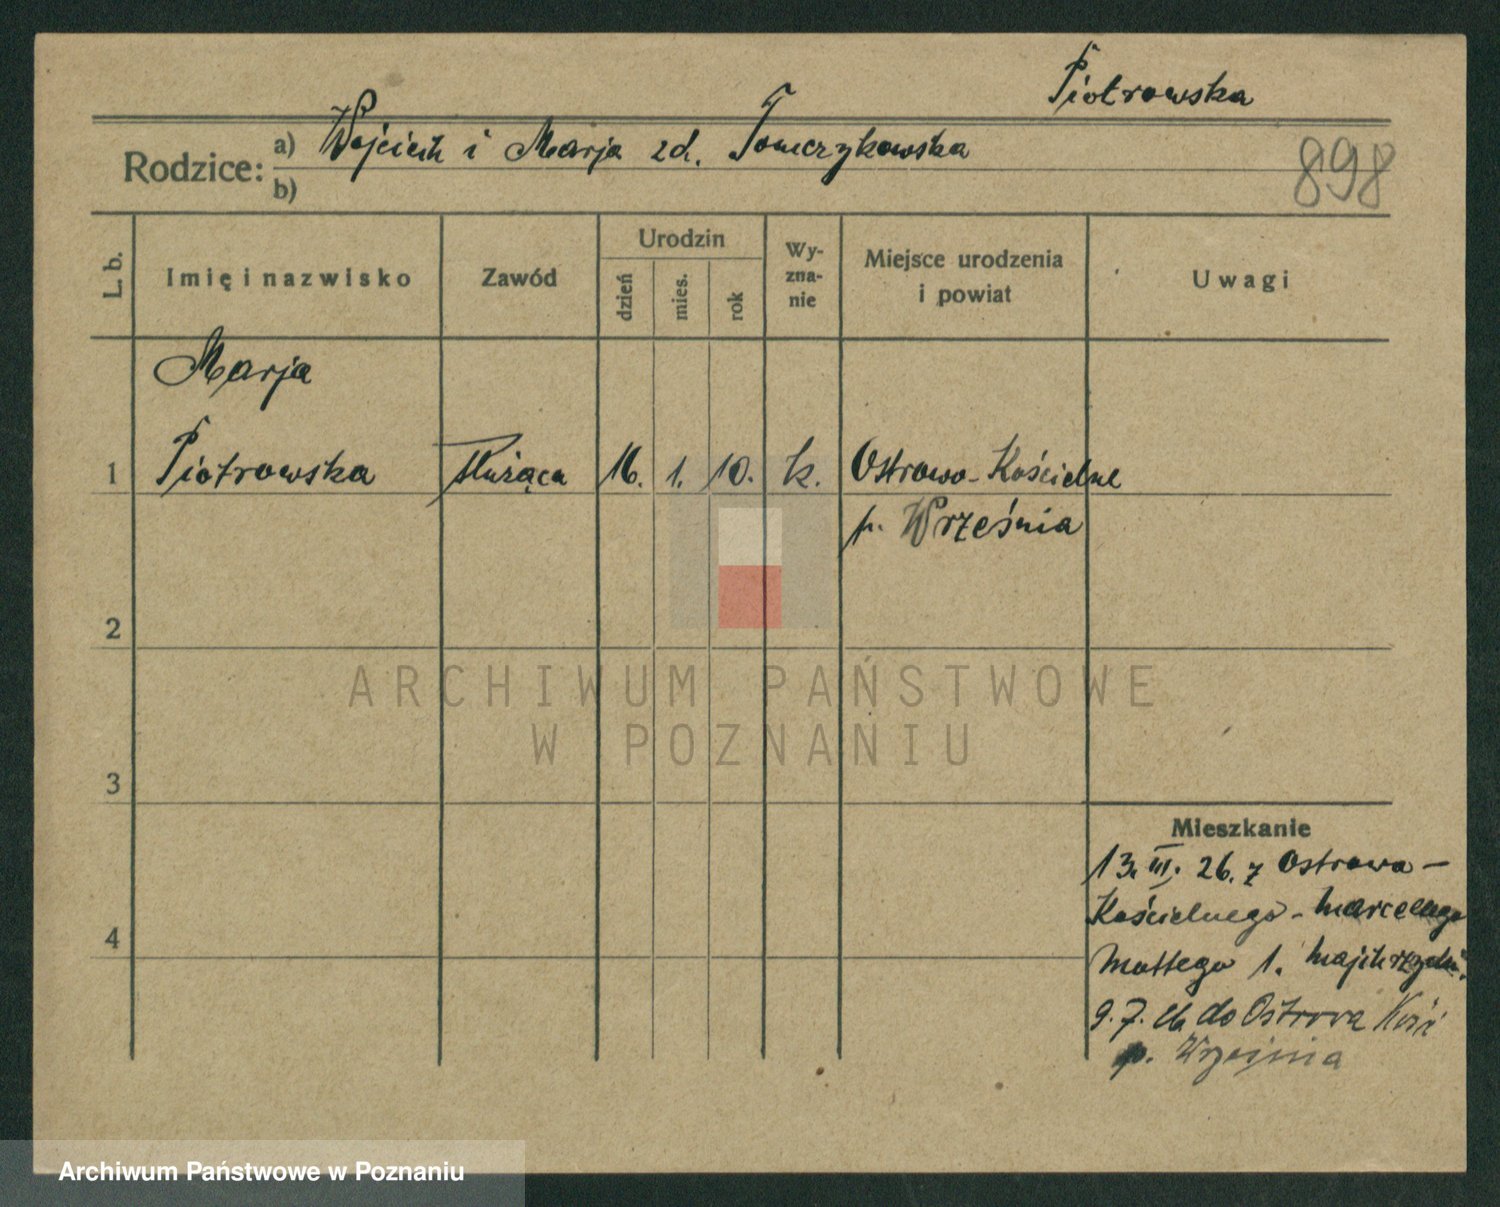 Piotrowska
Rodzice: a) Wojciech i Marja zd. Tomczykowska
b)
898
L. b.
Imię i nazwisko
Zawód
Urodzin
dzień
mies.
rok
Wy-
zna-
nie
Miejsce urodzenia
i powiat
Uwagi
Marja
1 Piotrowska służąca 16. 1. 10. k. Ostrowo-Kościelne
p. Września
2
ARCHIWUM PAŃSTWOWE
W POZNANIU
3
Mieszkanie
13. III. 26. z Ostrowa-
Kościelnego - Marcelego
4
Mottego 1.
9. 7. 26 do Ostrowa Kość
p. Września
Archiwum Państwowe w Poznaniu